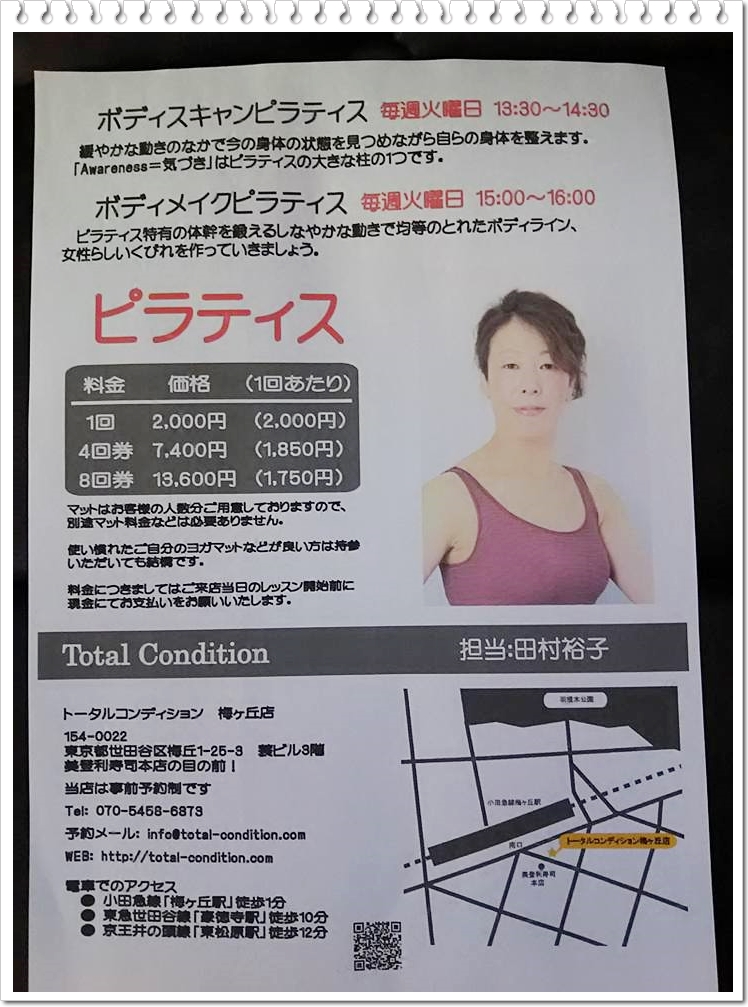 ボディスキャンピラティス 毎週火曜日 13:30～14:30
緩やかな動きのなかで今の身体の状態を見つめながら自らの身体を整えます。
「Awareness＝気づき」はピラティスの大きな柱の1つです。
ボディメイクピラティス 毎週火曜日 15:00～16:00
ピラティス特有の体幹を鍛えるしなやかな動きで均等のとれたボディライン、
女性らしいくびれを作っていきましょう。
ピラティス
料金 価格 （1回あたり）
1回 2,000円 （2,000円）
4回券 7,400円 （1,850円）
8回券 13,600円 （1,750円）
マットはお客様の人数分ご用意しておりますので、
別途マット料金などは必要ありません。
使い慣れたご自分のヨガマットなどが良い方は持参
いただいても結構です。
料金につきましてはご来店当日のレッスン開始前に
現金にてお支払いをお願いいたします。
Total Condition 担当:田村裕子
トータルコンディション 梅ヶ丘店
154-0022
東京都世田谷区梅丘1-25-3 蓑ビル3階
美登利寿司本店の目の前！
当店は事前予約制です
Tel: 070-5458-6873
予約メール: info@total-condition.com
WEB: http://total-condition.com
電車でのアクセス
● 小田急線「梅ヶ丘駅」徒歩1分
● 東急世田谷線「豪徳寺駅」徒歩10分
● 京王井の頭線「東松原駅」徒歩12分
羽根木公園
小田急線梅ヶ丘駅
南口
トータルコンディション梅ヶ丘店
美登利寿司
本店